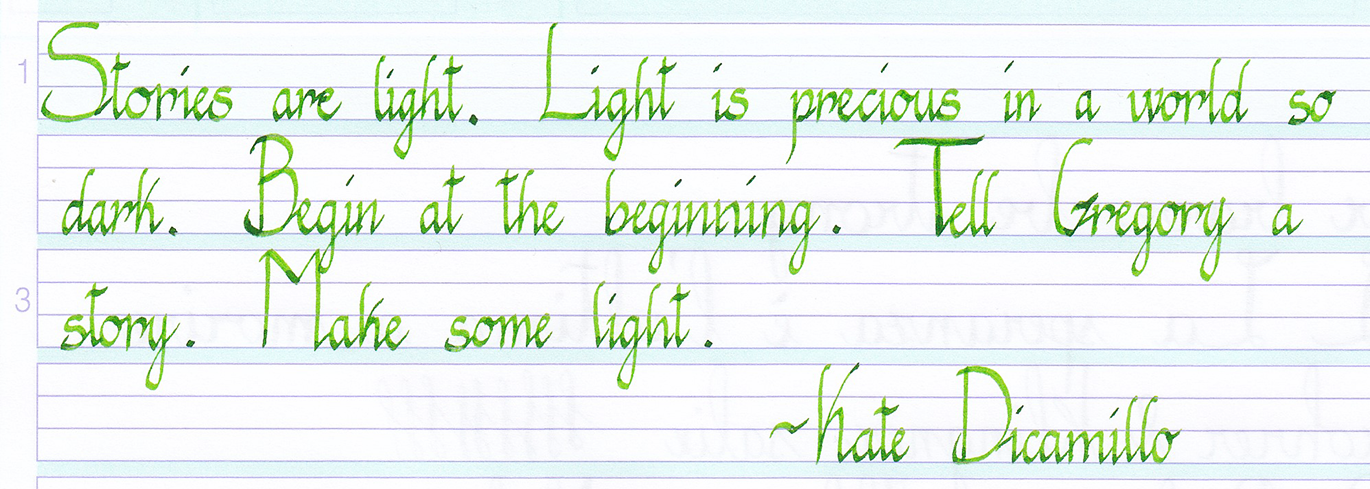 1 Stories are light. Light is precious in a world so
dark. Begin at the beginning. Tell Gregory a
3 story. Make some light.
~Kate Dicamillo